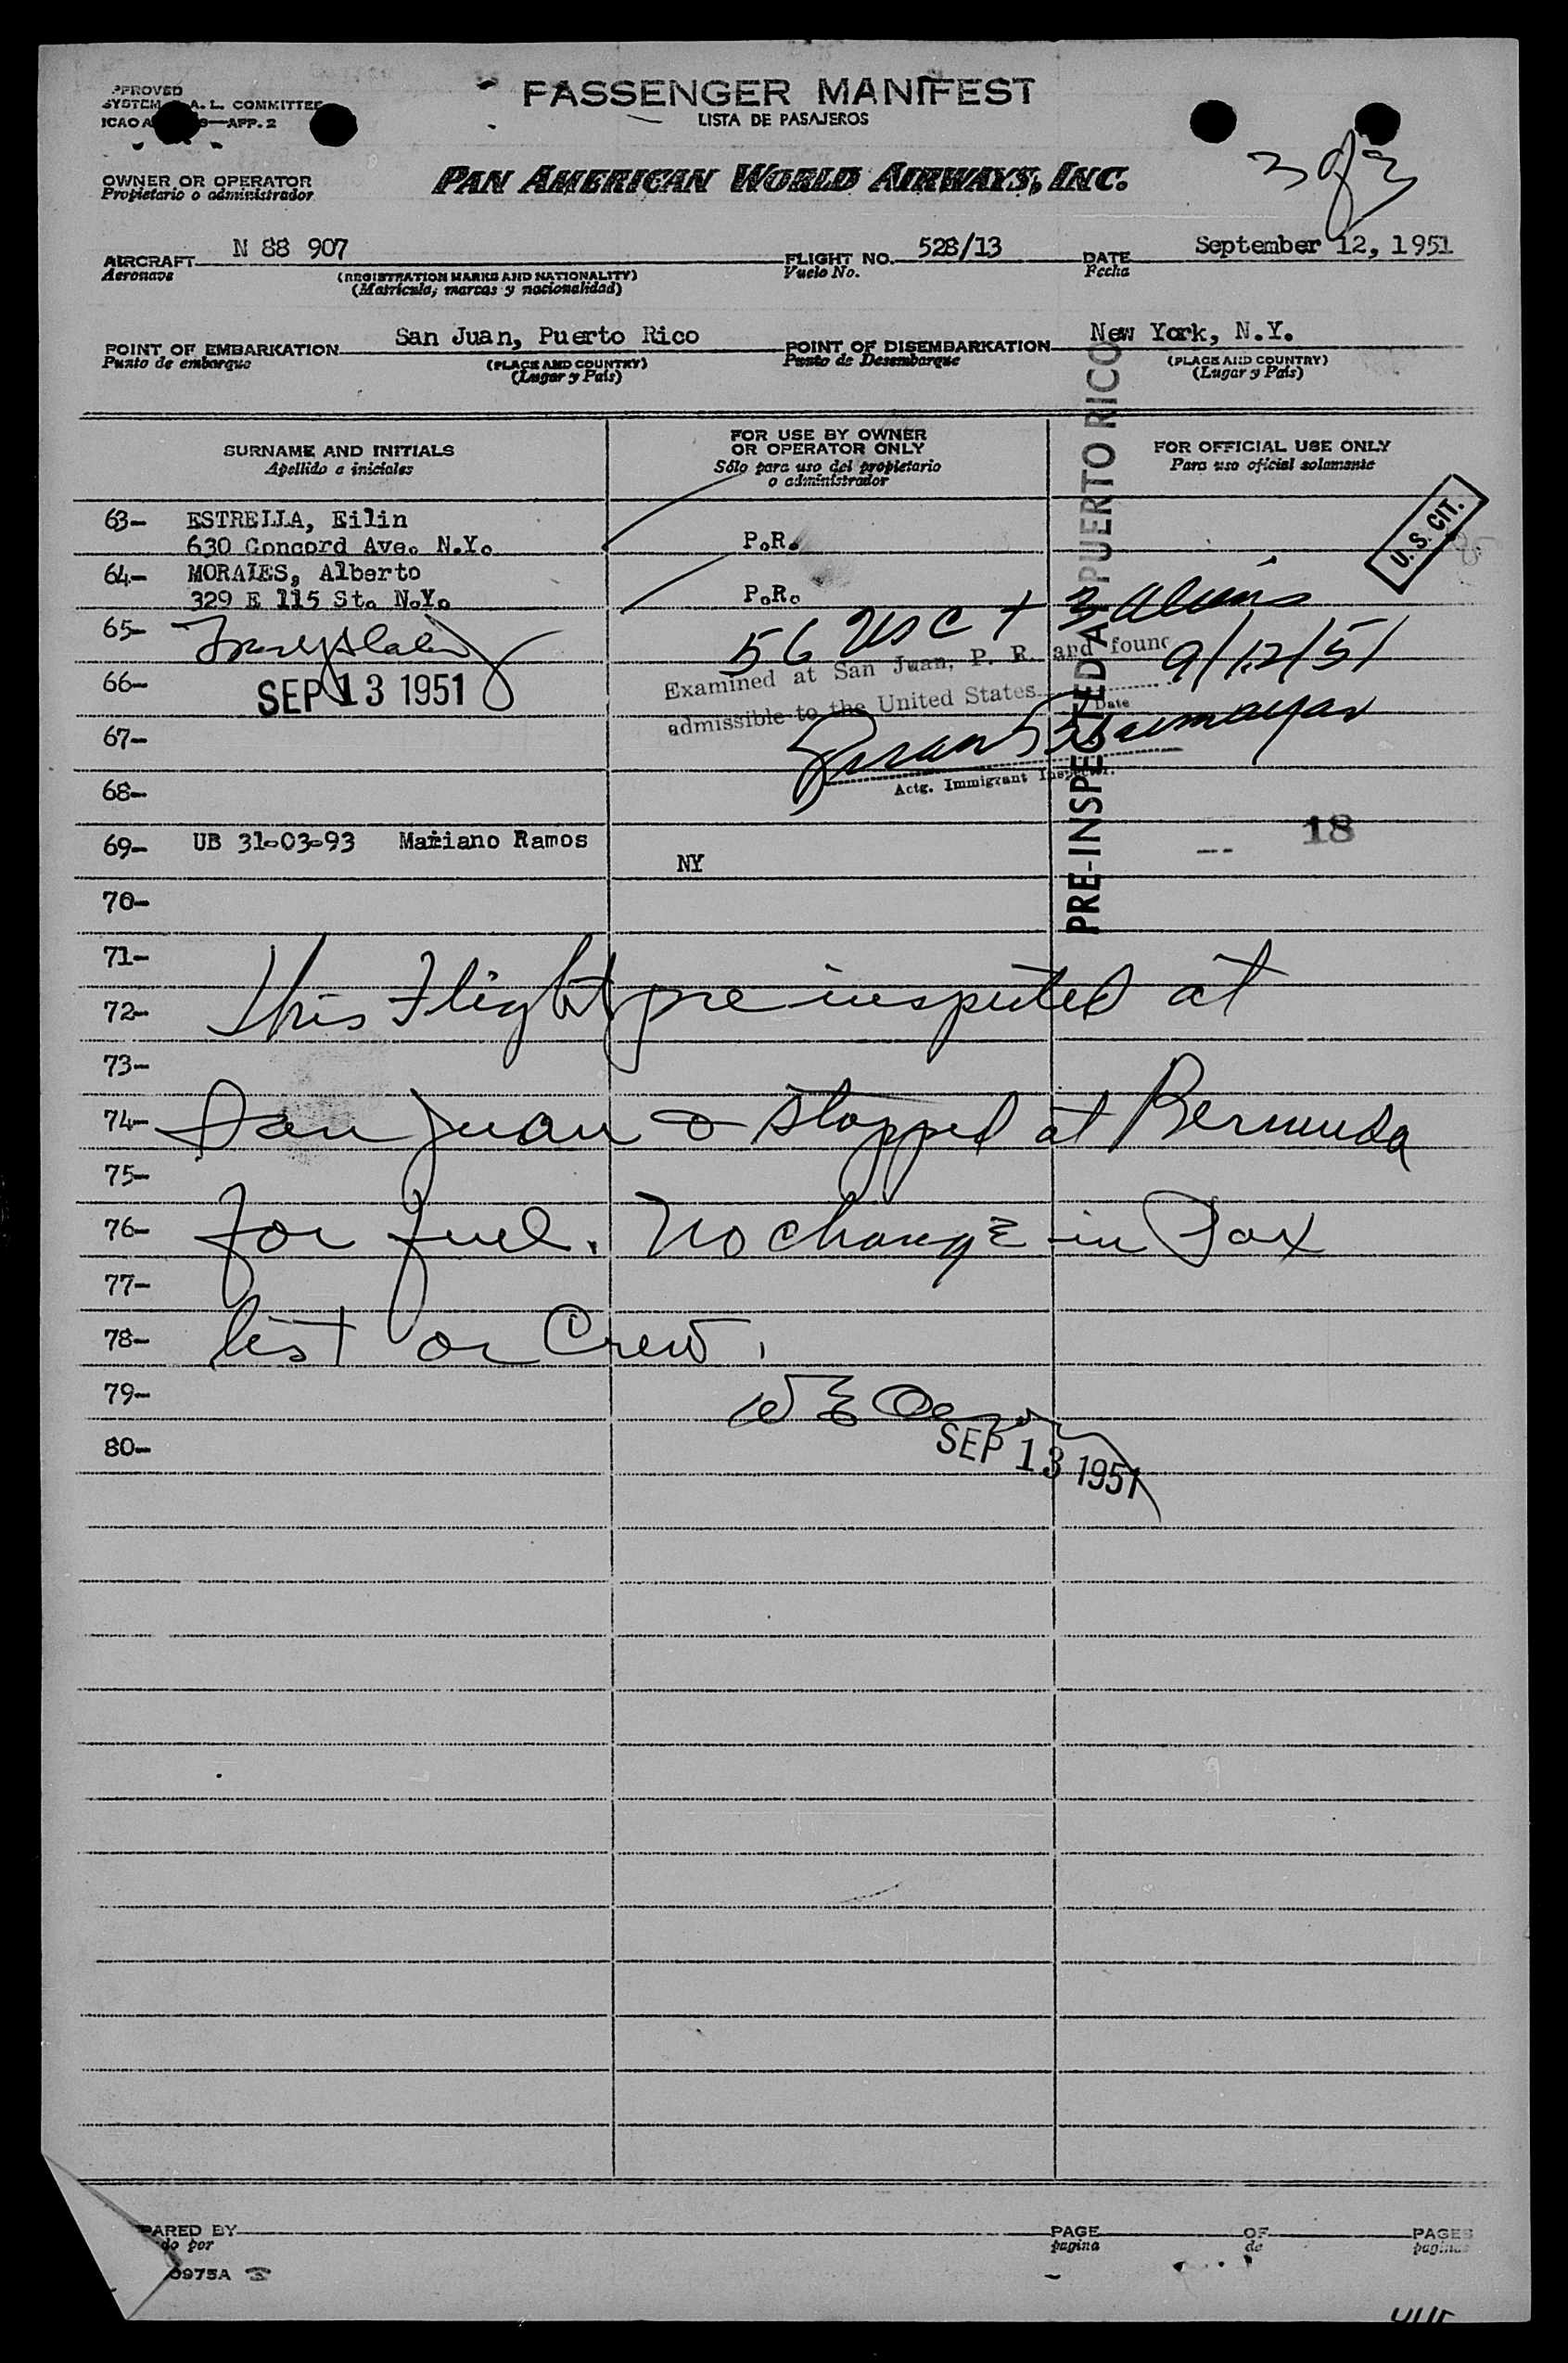 PASSENGER MANIFEST
LISTA DE PASAJEROS
SYSTEM A. L. COMMITTEE
ICAO APP. 2
3 of 3
OWNER OR OPERATOR
Propietario o administrador
PAN AMERICAN WORLD AIRWAYS, INC.
AIRCRAFT N 88 907 FLIGHT NO. 528/13 DATE September 12, 1951
Aeronave (REGISTRATION MARKS AND NATIONALITY) Vuelo No. Fecha
(Matrícula, marcas y nacionalidad)
POINT OF EMBARKATION San Juan, Puerto Rico POINT OF DISEMBARKATION New York, N.Y.
Punto de embarque (PLACE AND COUNTRY) Punto de Desembarque (PLACE AND COUNTRY)
(Lugar y País) (Lugar y País)
SURNAME AND INITIALS
Apellido e iniciales
FOR USE BY OWNER
OR OPERATOR ONLY
Sólo para uso del propietario
o administrador
FOR OFFICIAL USE ONLY
Para uso oficial solamente
63- ESTRELLA, Eilin
630 Concord Ave. N.Y. P.R.
U. S. CIT.
64- MORALES, Alberto
329 E 115 St. N.Y. P.R.
65-
56 USC + 3 Aliens
66- SEP 13 1951
Examined at San Juan, P. R. and found
admissible to the United States 9/12/51
Date
67-
Actg. Immigrant Inspector.
68-
PRE-INSPECTED AT PUERTO RICO
69- UB 31-03-93 Mariano Ramos NY 18
70-
71-
72- This Flight pre inspected at
73-
74- San Juan & stopped at Bermuda
75-
76- for fuel. No change in Pax
77-
78- list or Crew.
79-
80- SEP 13 1951
PARED BY PAGE OF PAGES
do por pagina de paginas
0975A